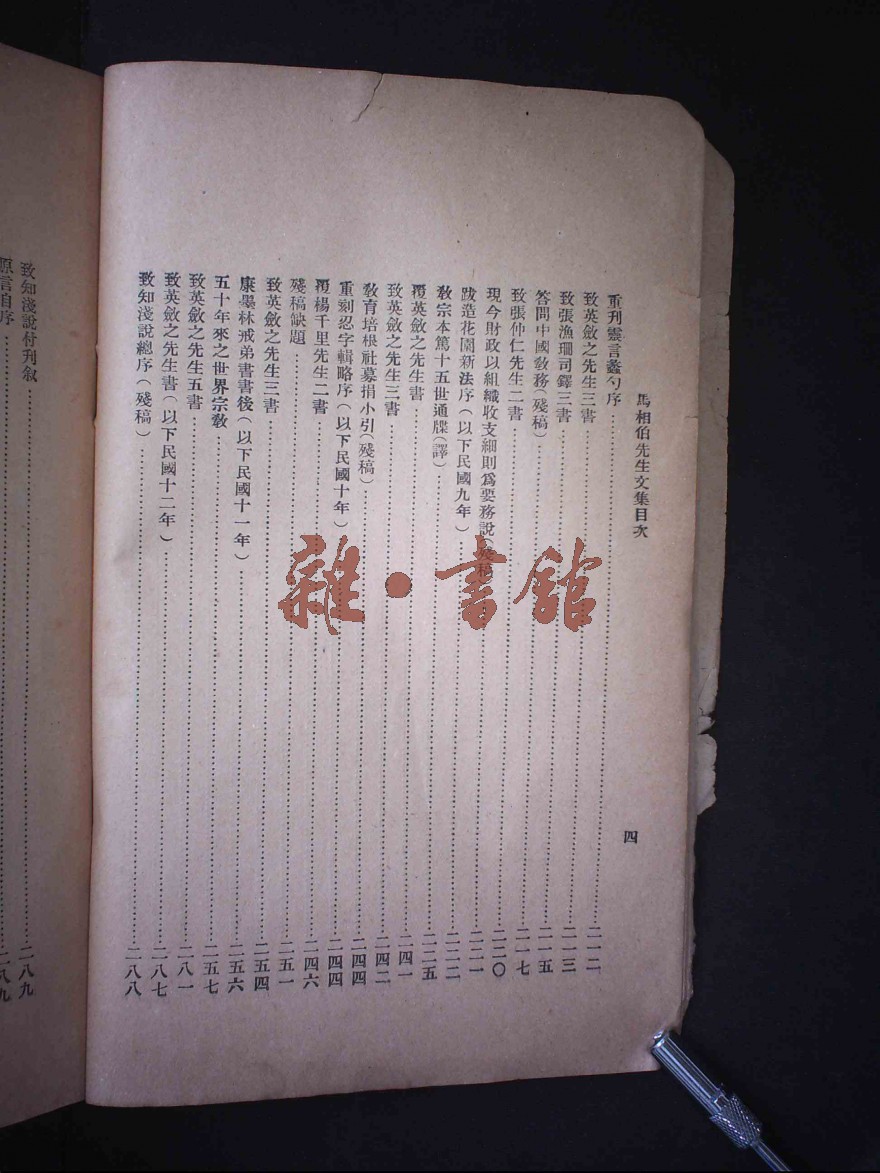 馬相伯先生文集目次 四
重刊靈言蠡勺序……二一二
致英斂之先生三書……二一三
致張漁珊司鐸三書……二一五
答問中國敎務(殘稿)……二一七
致張仲仁先生二書……二二〇
現今財政以組織收支細則爲要務說(殘稿)……二二一
跋造花園新法序(以下民國九年)……二二二
敎宗本篤十五世通牒(譯)……二二五
覆英斂之先生書……二四一
致英斂之先生三書……二四二
敎育培根社募捐小引(殘稿)……二四四
重刻忍字輯略序(以下民國十年)……二四四
覆楊千里先生二書……二四六
殘稿缺題……二五一
致英斂之先生三書……二五四
康墨林戒弟書書後(以下民國十一年)……二五六
五十年來之世界宗敎……二五七
致英斂之先生五書……二八一
致英斂之先生書(以下民國十二年)……二八七
致知淺說總序(殘稿)……二八八
致知淺說付刊叙……二八九
原言自序……二八九
雜·書館